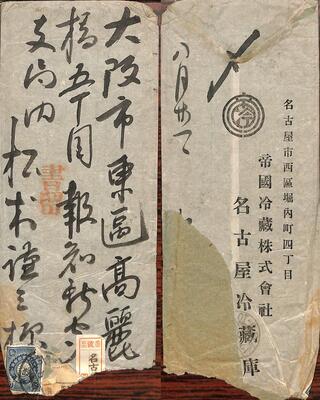 大阪市東區高麗
橋五丁目報知新セン
支局内
松本謹三様
書留
名古
〆
八月廿一
名古屋市西區堀内町四丁目
帝國冷藏株式會社
名古屋冷藏庫